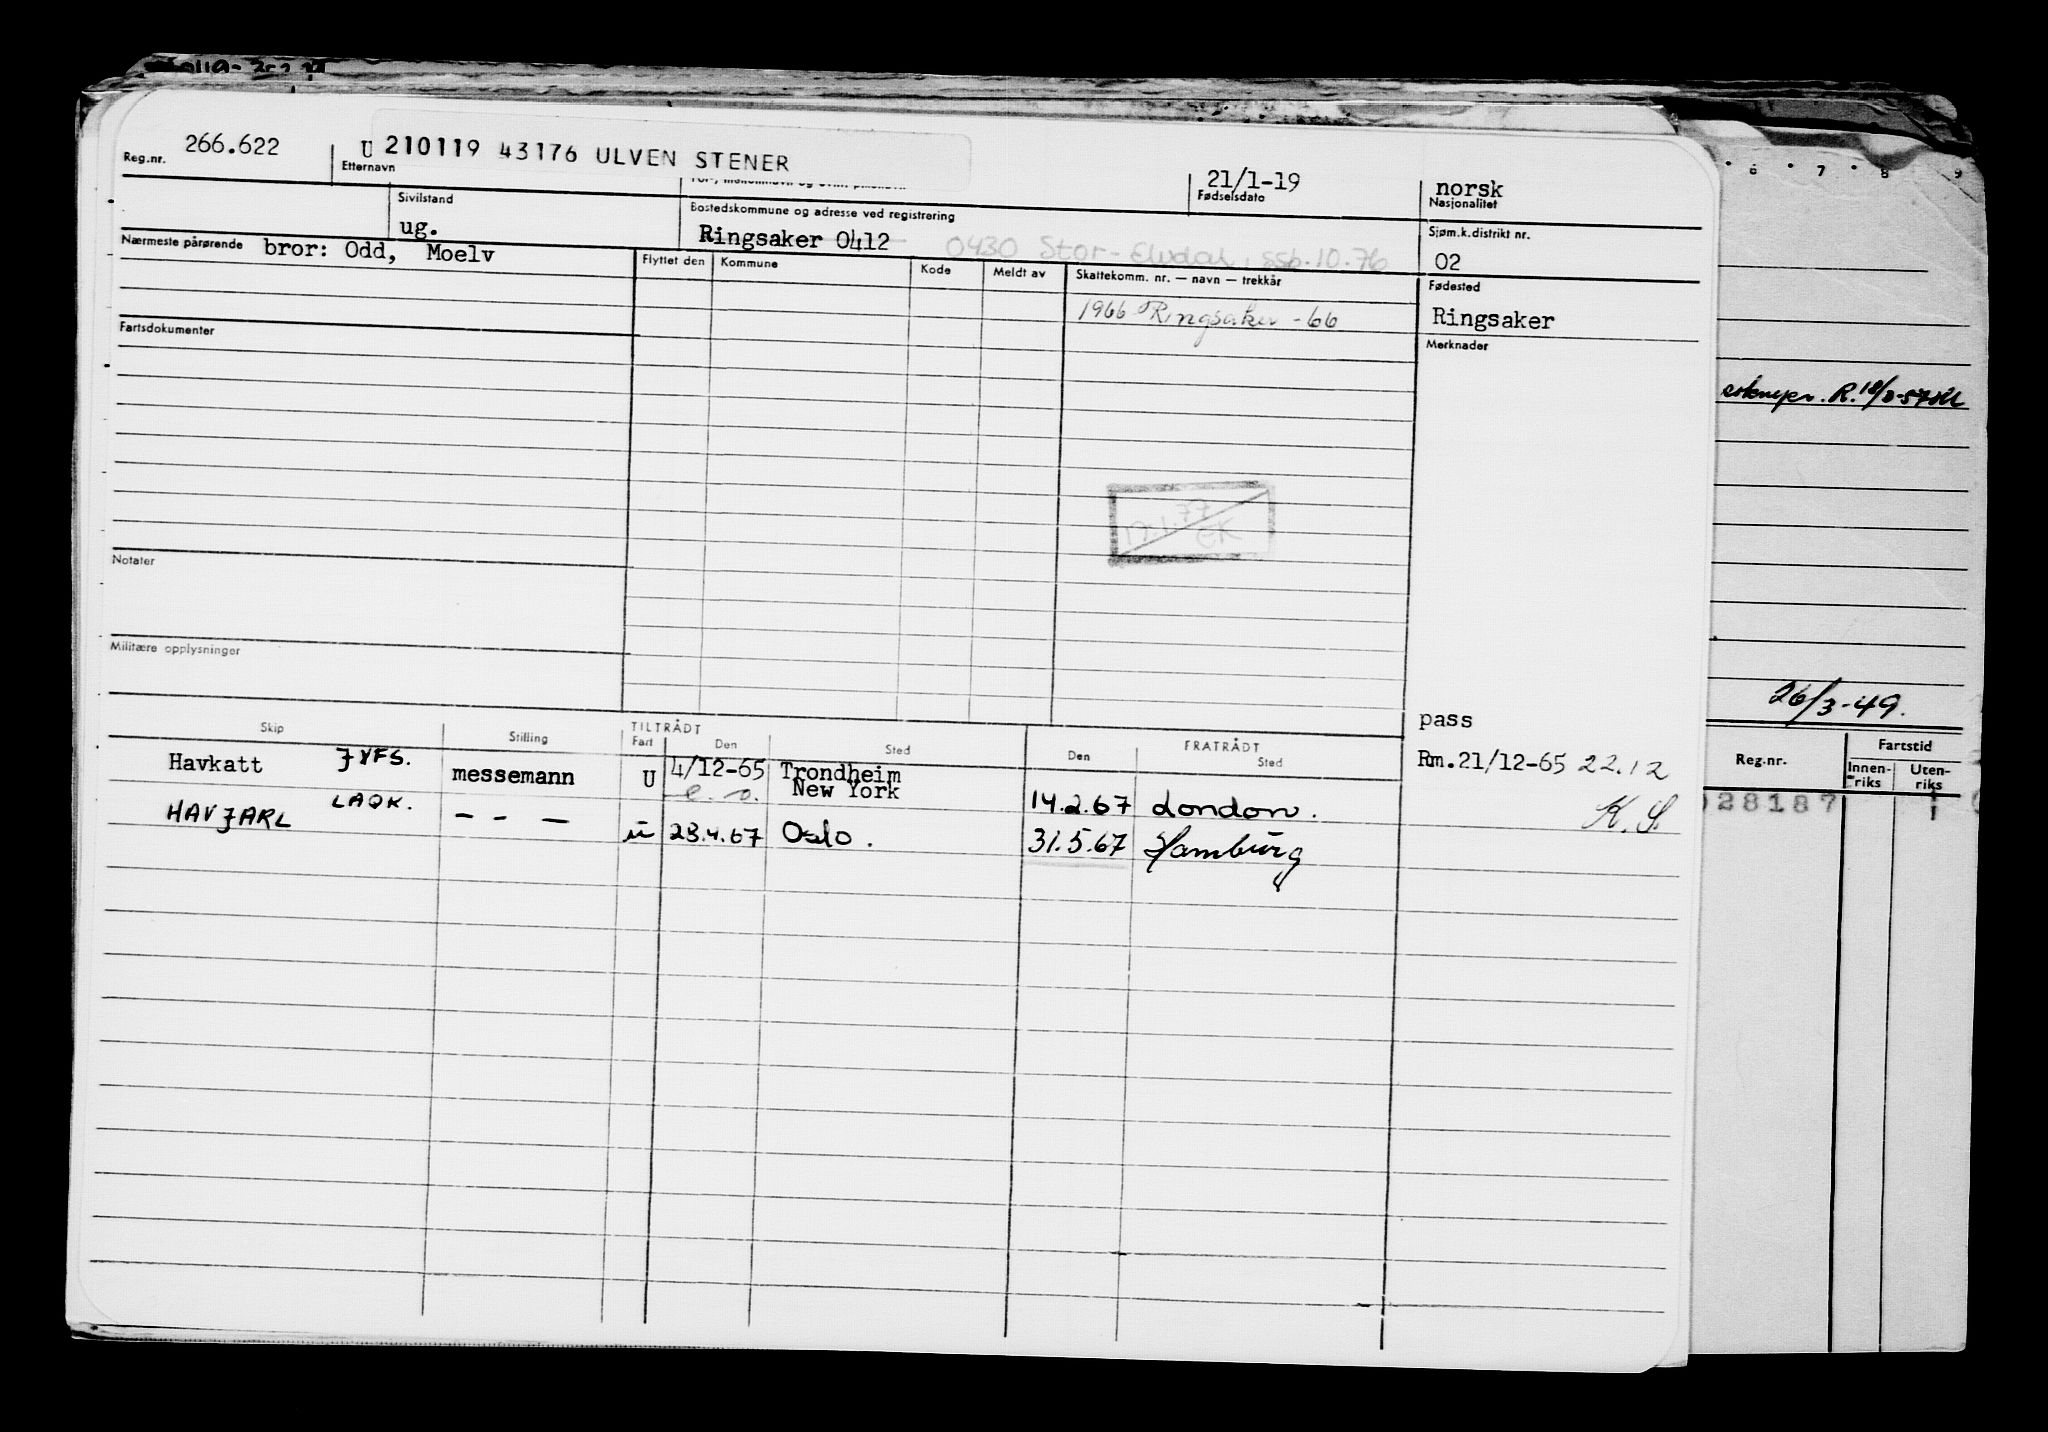 Reg.nr. 266.622
U 210119 43176 ULVEN STENER
Etternavn
21/1-19
Fødselsdato
norsk
Nasjonalitet
Sivilstand
ug.
Bostedskommune og adresse ved registrering
Ringsaker 0412 0430 Stor-Elvdal, ssb.10.76
Sjøm.k.distrikt nr.
02
Nærmeste pårørende bror: Odd, Moelv
Flyttet den Kommune Kode Meldt av Skattekomm. nr. — navn — trekkår
1966 Ringsaker -66
Fødested
Ringsaker
Fartsdokumenter
Merknader
77
EK
Notater
Militære opplysninger
pass
Skip Stilling TILTRÅDT FRATRÅDT
Fart Den Sted Den Sted
Havkatt JXFS. messemann U 4/12-65 Trondheim
New York 14.2.67 London.
Rm.21/12-65 22.12
K.S.
HAVJARL LAQK. — - — u 23.4.67 Oslo. 31.5.67 Hamburg
6 7 8 9
26/3-49.
Reg.nr. Fartstid
Innen-riks Uten-riks
028187 1